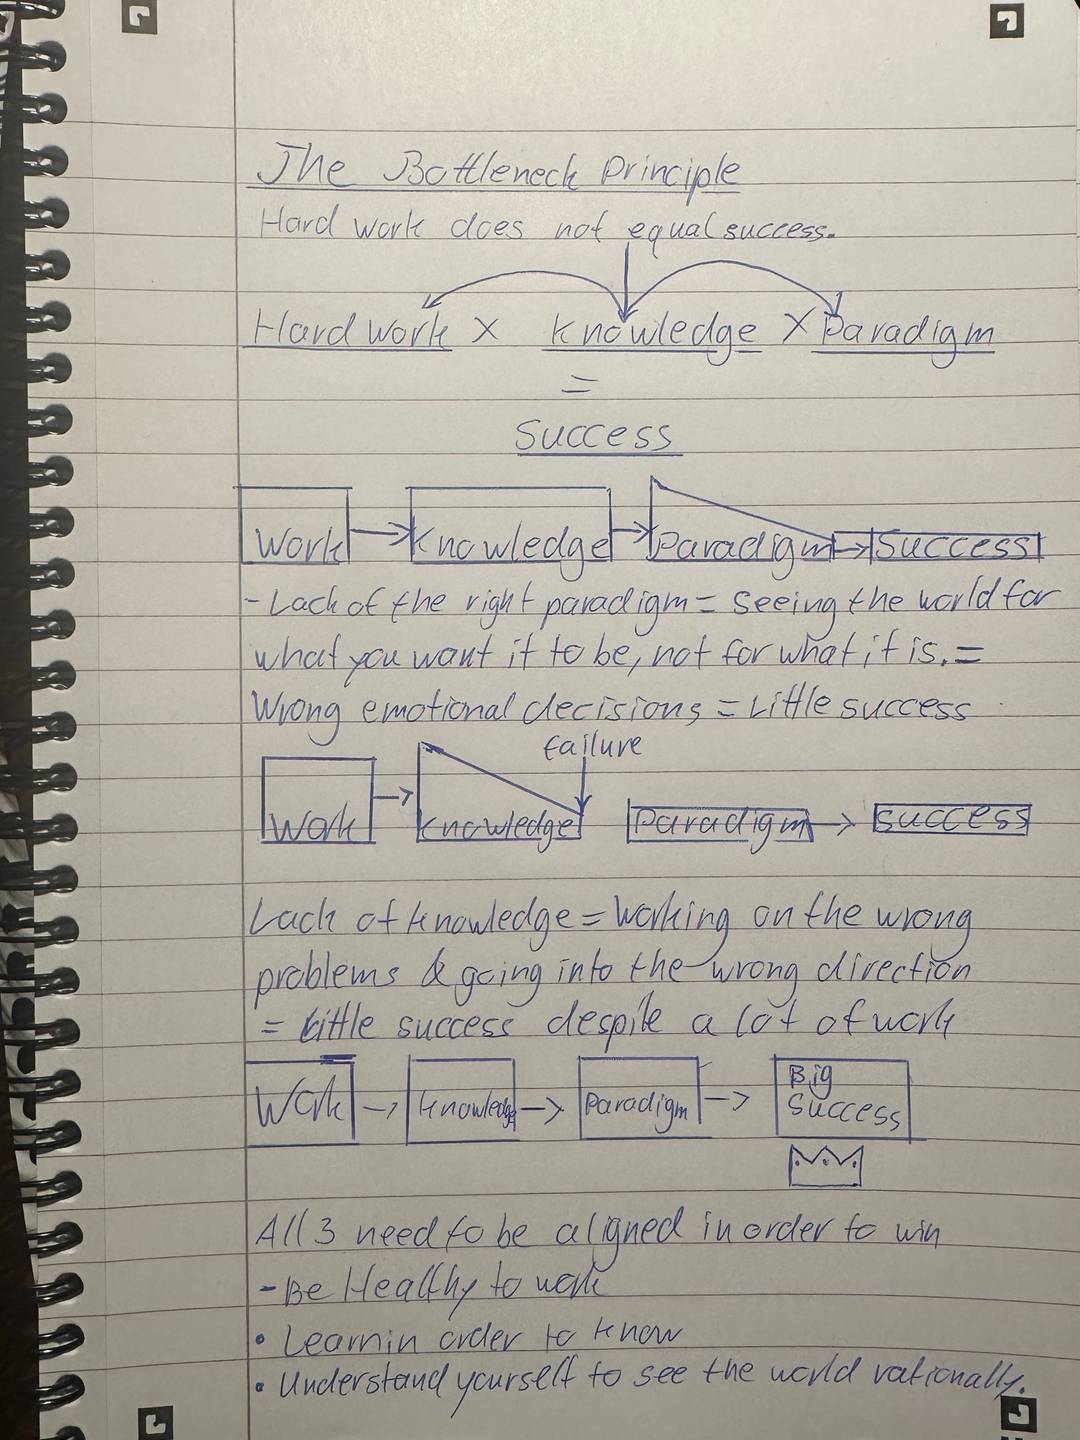 The Bottleneck Principle
Hard work does not equal success.
Hard work X Knowledge X Paradigm
=
Success
Work Knowledge Paradigm Success
- Lack of the right paradigm = Seeing the world for
what you want it to be, not for what it is. =
Wrong emotional decisions = Little success
failure
Work Knowledge Paradigm success
Lack of knowledge = Working on the wrong
problems & going into the wrong direction
= little success despite a lot of work
Work Knowledge Paradigm Big Success
All 3 need to be aligned in order to win
- Be Healthy to work
• Learn in order to know
• Understand yourself to see the world rationally.